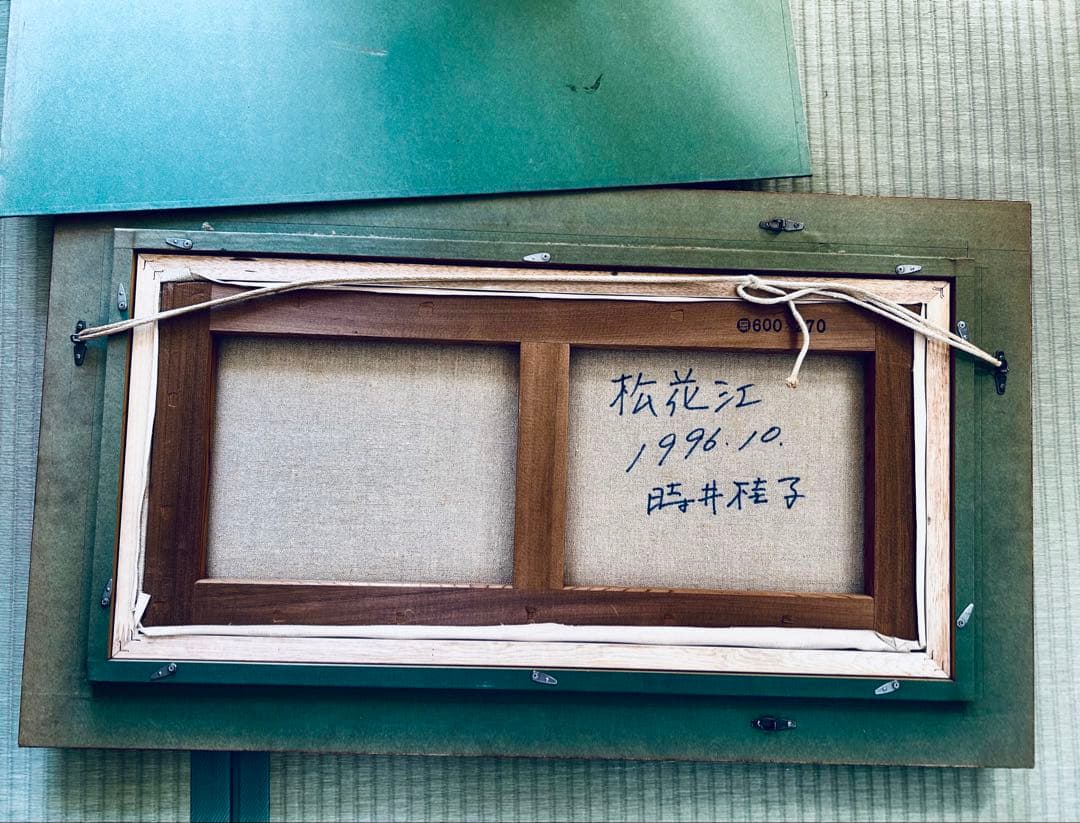 600
70
松花江
1996.10.
時井桂子